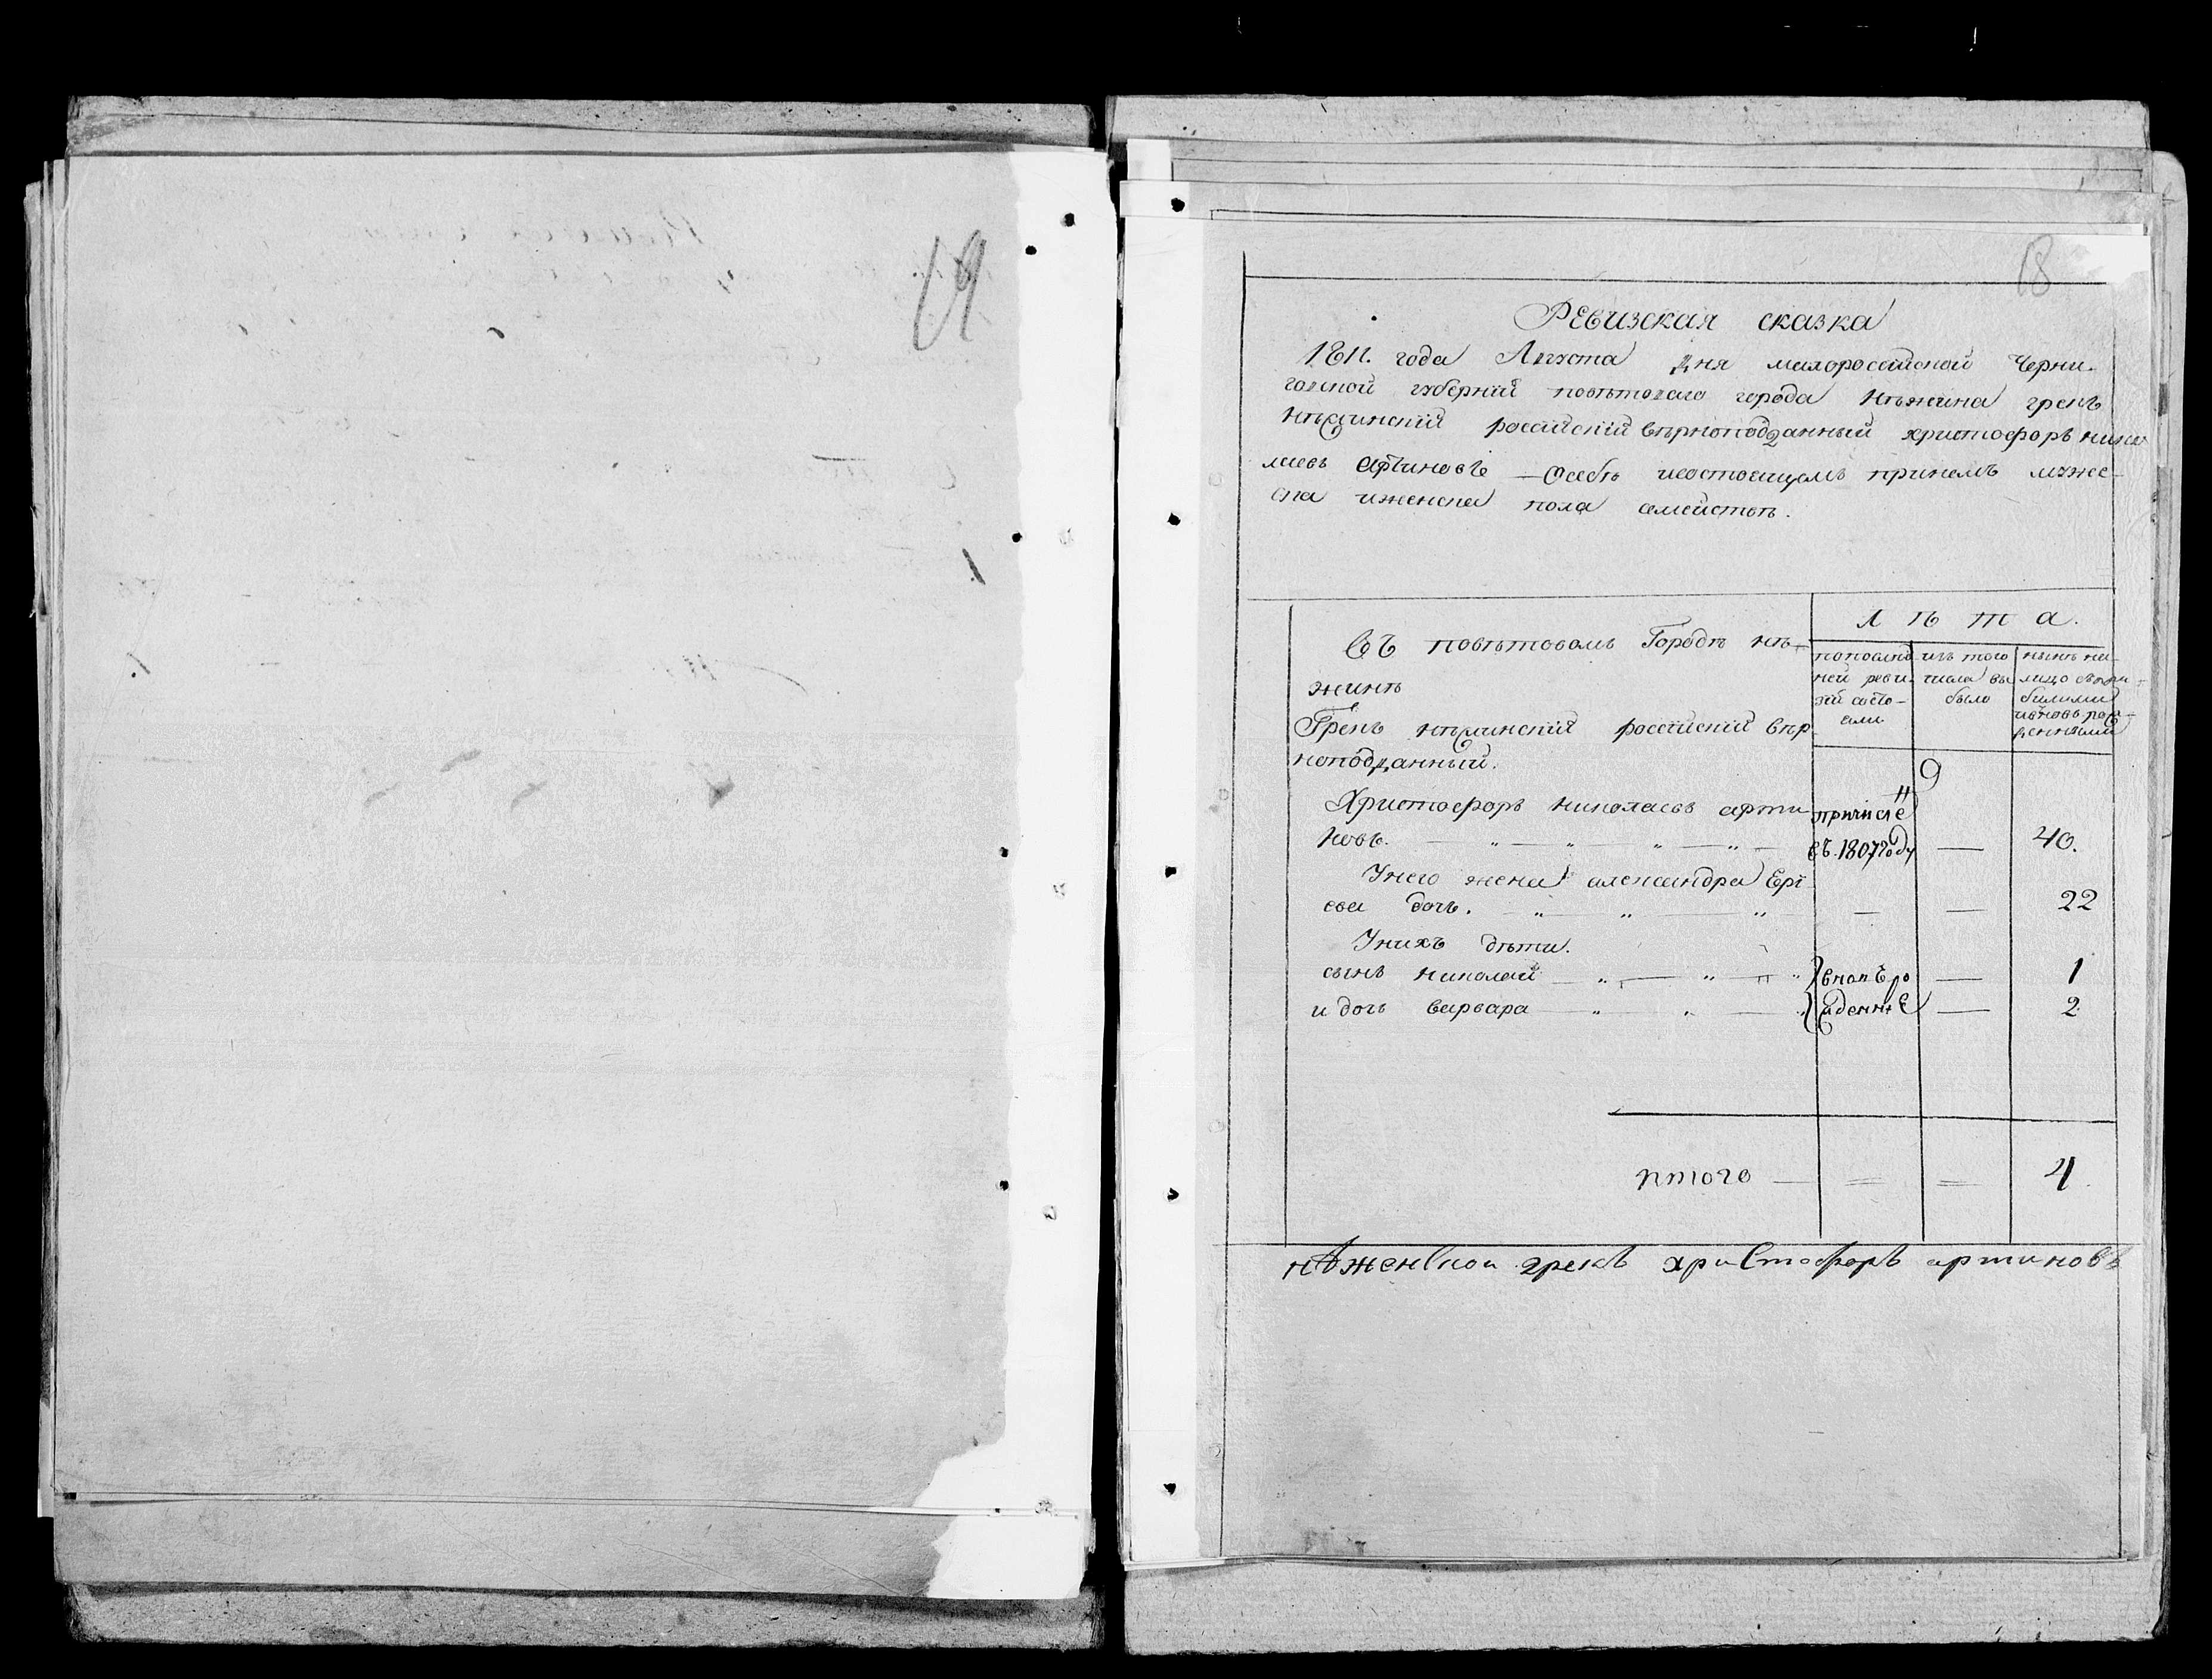 19
18
Ревизская сказка
1811. года Августа дня малороссийской Черни-
говской губернии поветоваго города Нежина грекъ
нежинский российский верноподданный христофоръ никo
лаевъ артиновъ — Особъ исостоящемъ принемъ мужес-
ска иженска пола семействѣ.
Въ повѣтовомъ Городѣ нѣ-
жинѣ
Грекъ нѣжинский российский вѣр
ноподданный.
Лѣта.
попослѣд
ней реви-
зіи состо-
яли
изъ того
числа вы
было
нынѣ на
лицо съ при
былыми
ивновь рож
денными
9
Христофоръ николаевъ арти
новъ. — „ — „ — „ — „ —
причисле
н
въ 1807 году
—
40.
Унего жена александра Ері-
ева дочь. — „ — „ — „
—
—
22
Унихъ дѣти.
сынъ николай — „ — „ — „
вновъ ро
—
1
и дочь варвара — „ — „ — „
жденнѣ
—
2
итого —
=
=
4
нѣженскои грекъ христофоръ артиновъ